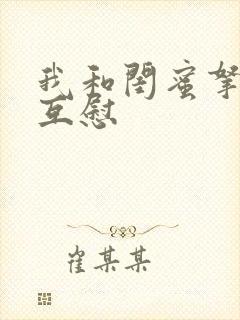 我和闺蜜
互慰
崔某某